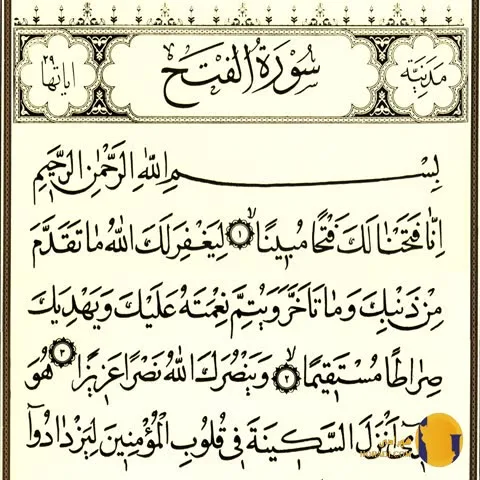 مدنية
سورة الفتح
اياتها ٢٩
بسم الله الرحمن الرحيم
انا فتحنا لك فتحا مبينا ١ ليغفر لك الله ما تقدم
من ذنبك وما تاخر ويتم نعمته عليك ويهديك
صراطا مستقيما ٢ وينصرك الله نصرا عزيزا ٣ هو
انزل السكينة في قلوب المؤمنين ليزدادوا